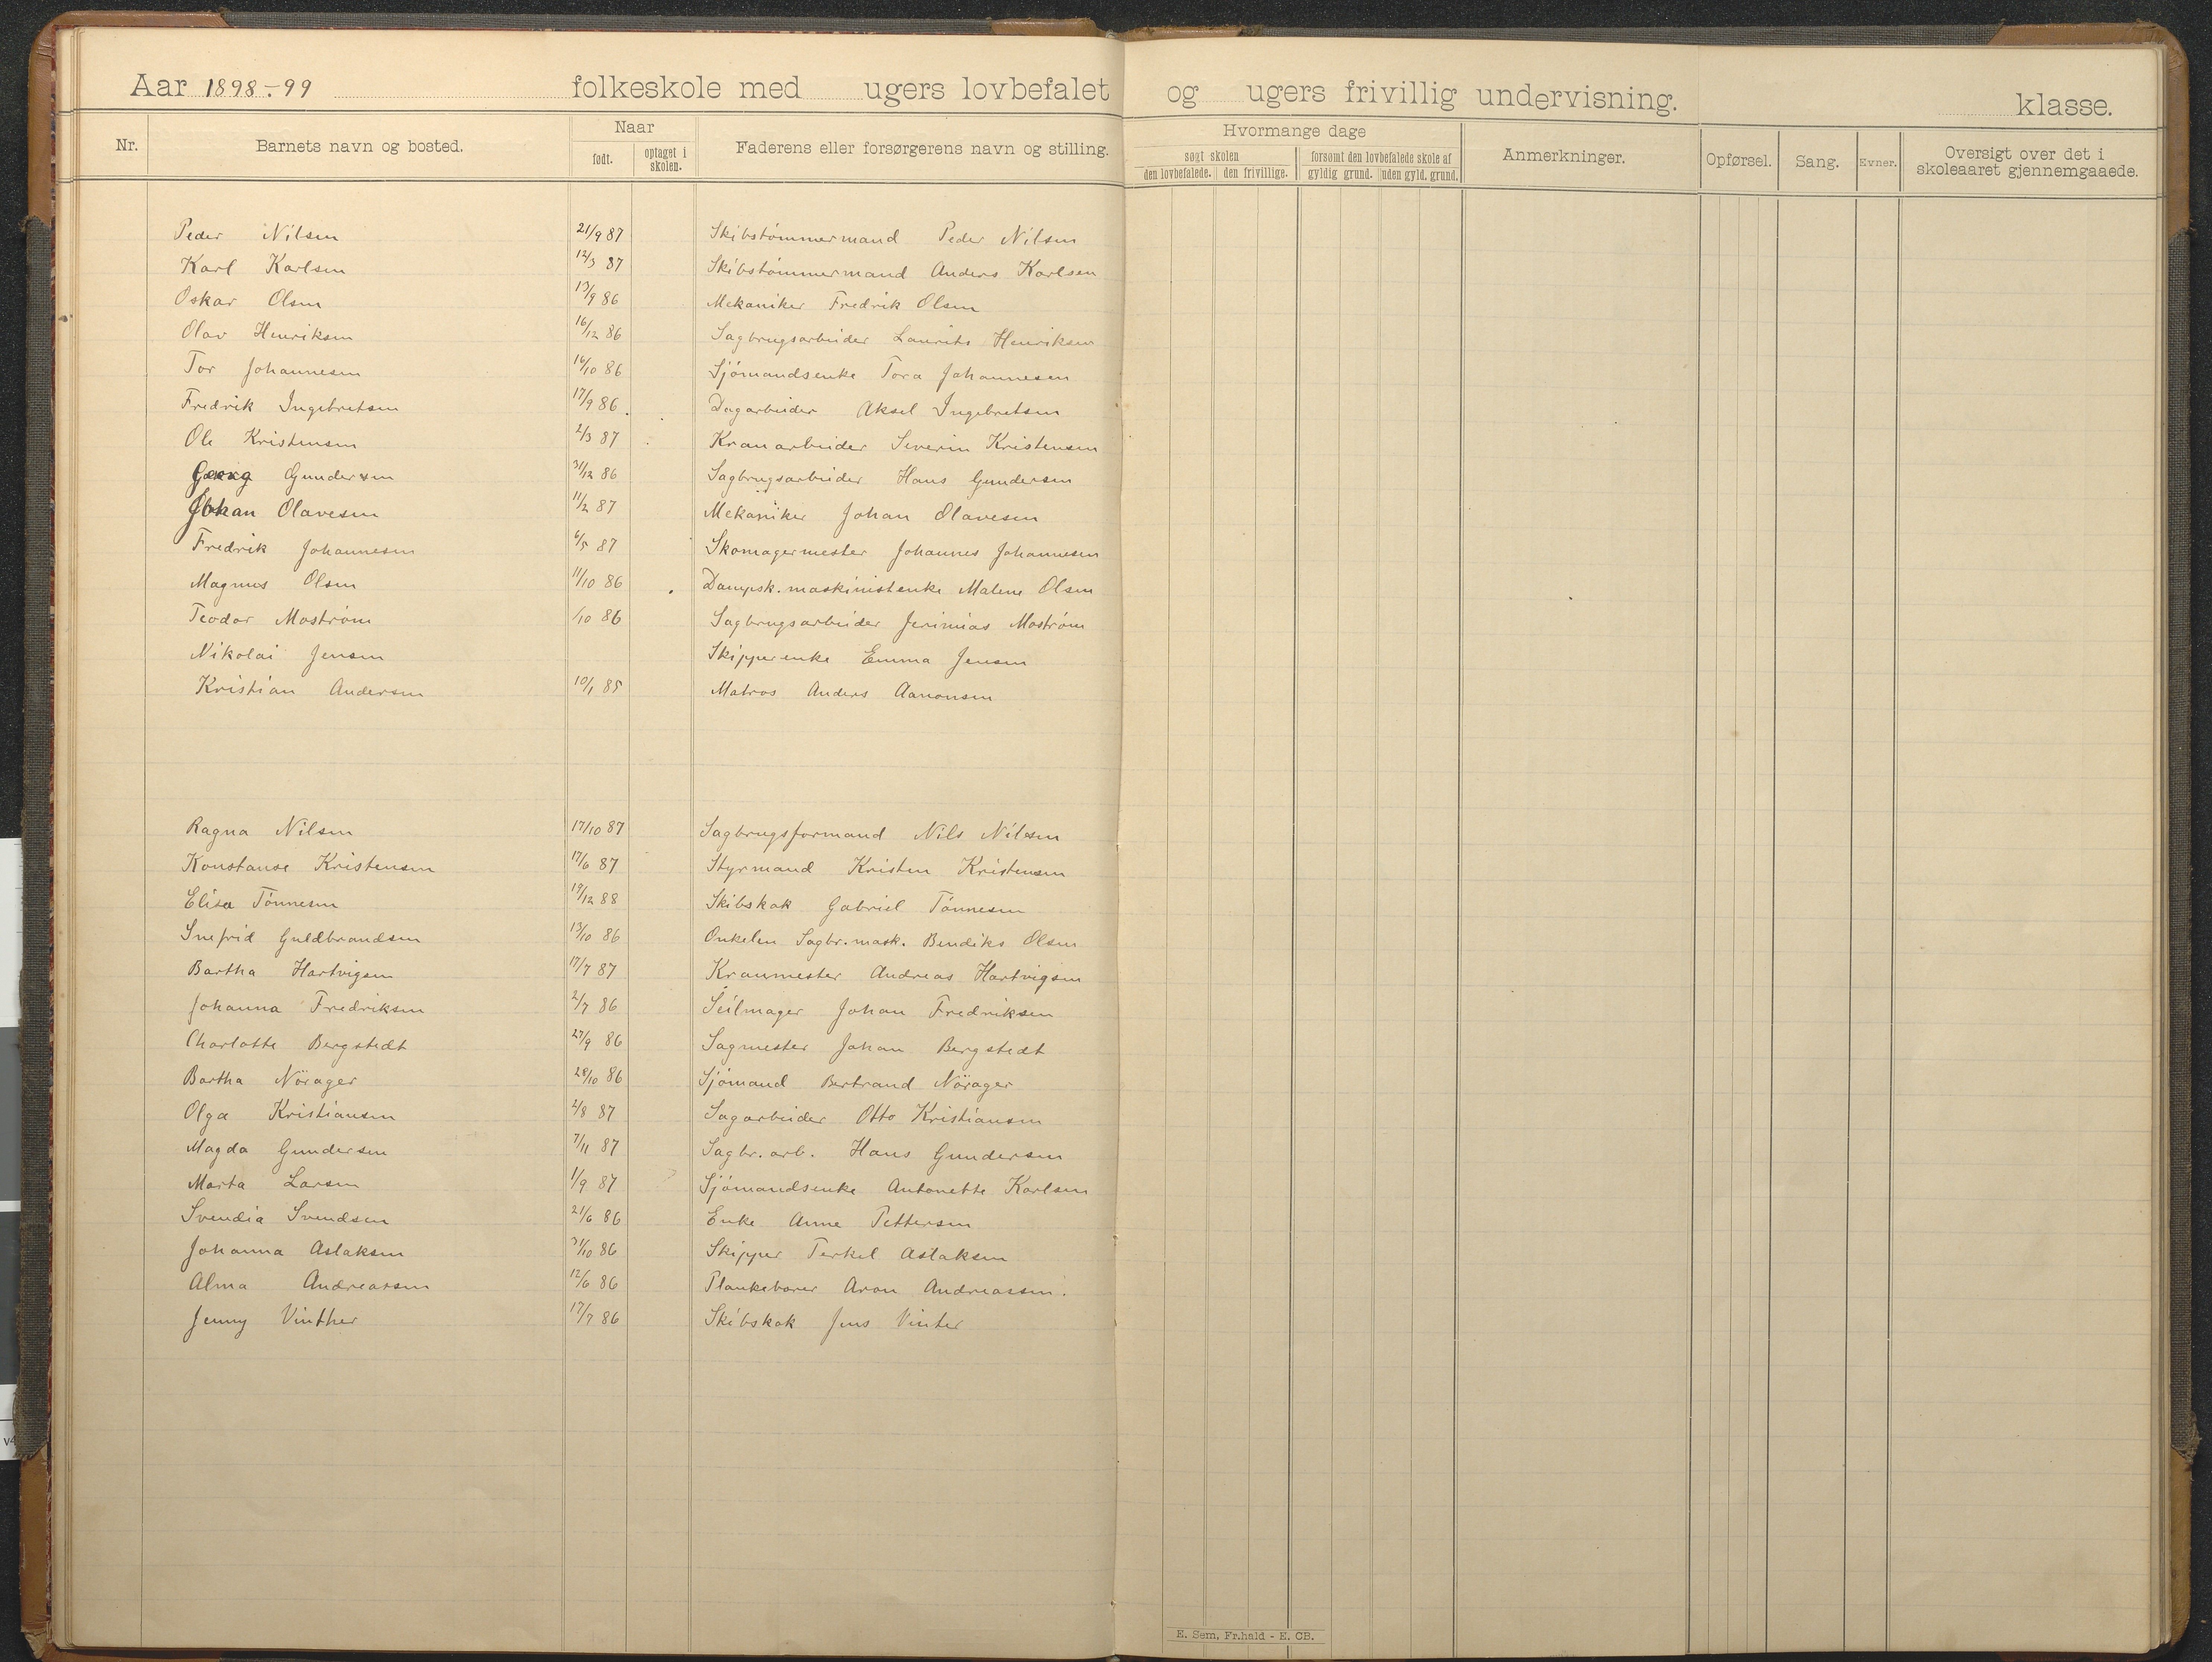 Aar 1898-99 folkeskole med ugers lovbefalet og ugers frivillig undervisning. klasse.
Nr. Barnets navn og bosted. Naar født. optaget i skolen. Faderens eller forsørgerens navn og stilling. Hvormange dage søgt skolen den lovbefalede. den frivillige. forsømt den lovbefalede skole af gyldig grund. uden gyld. grund. Anmerkninger. Opførsel. Sang. Evner. Oversigt over det i skoleaaret gjennemgaaede.
Peder Nilsen 21/9 87 Skibstömmermand Peder Nilsen
Karl Karlsen 12/3 87 Skibstömmermand Anders Karlsen
Oskar Olsen 13/9 86 Mekaniker Fredrik Olsen
Olav Henriksen 16/12 86 Sagbrugsarbeider Laurits Henriksen
Tor Johannesen 16/10 86 Sjömandsenke Tora Johannesen
Fredrik Ingebretsen 17/9 86. Dagarbeider Aksel Ingebretsen
Ole Kristensen 2/3 87 Kranarbeider Severin Kristensen
Georg Gundersen 31/12 86 Sagbrugsarbeider Hans Gundersen
Johan Olavesen 11/2 87 Mekaniker Johan Olavesen
Fredrik Johannesen 6/5 87 Skomagermester Johannes Johannesen
Magnus Olsen 11/10 86 Dampsk. maskinistenke Malene Olsen
Teodor Moström /10 86 Sagbrugsarbeider Jerimias Moström
Nikolai Jensen Skipperenke Emma Jensen
Kristian Andersen 10/1 85 Matros Anders Aanonsen
Ragna Nilsen 17/10 87 Sagbrugsformand Nils Nilsen
Konstanse Kristensen 17/6 87 Styrmand Kristen Kristensen
Elisa Tönnesen 19/12 88 Skibskok Gabriel Tönnesen
Snefrid Guldbrandsen 13/10 86 Onkelen Sagbr. mask. Bendiks Olsen
Bartha Hartvigsen 17/7 87 Kranmester Andreas Hartvigsen
Johanna Fredriksen 2/7 86 Seilmager Johan Fredriksen
Charlotte Bergstedt 27/9 86 Sagmester Johan Bergstedt
Bartha Nörager 28/10 86 Sjömand Bertrand Nörager
Olga Kristiansen 2/8 87 Sagarbeider Otto Kristiansen
Magda Gundersen 7/11 87 Sagbr. arb. Hans Gundersen
Marta Larsen 1/9 87 Sjömandsenke Antonette Karlsen
Svendia Svendsen 21/6 86 Enke Anne Pettersen
Johanna Aslaksen 31/10 86 Skipper Terkel Aslaksen
Alma Andreassen 12/6 86 Plankebærer Aron Andreassen.
Jenny Vinther 17/7 86 Skibskok Jens Vinter
E. Sem, Fr.hald - E. CB.